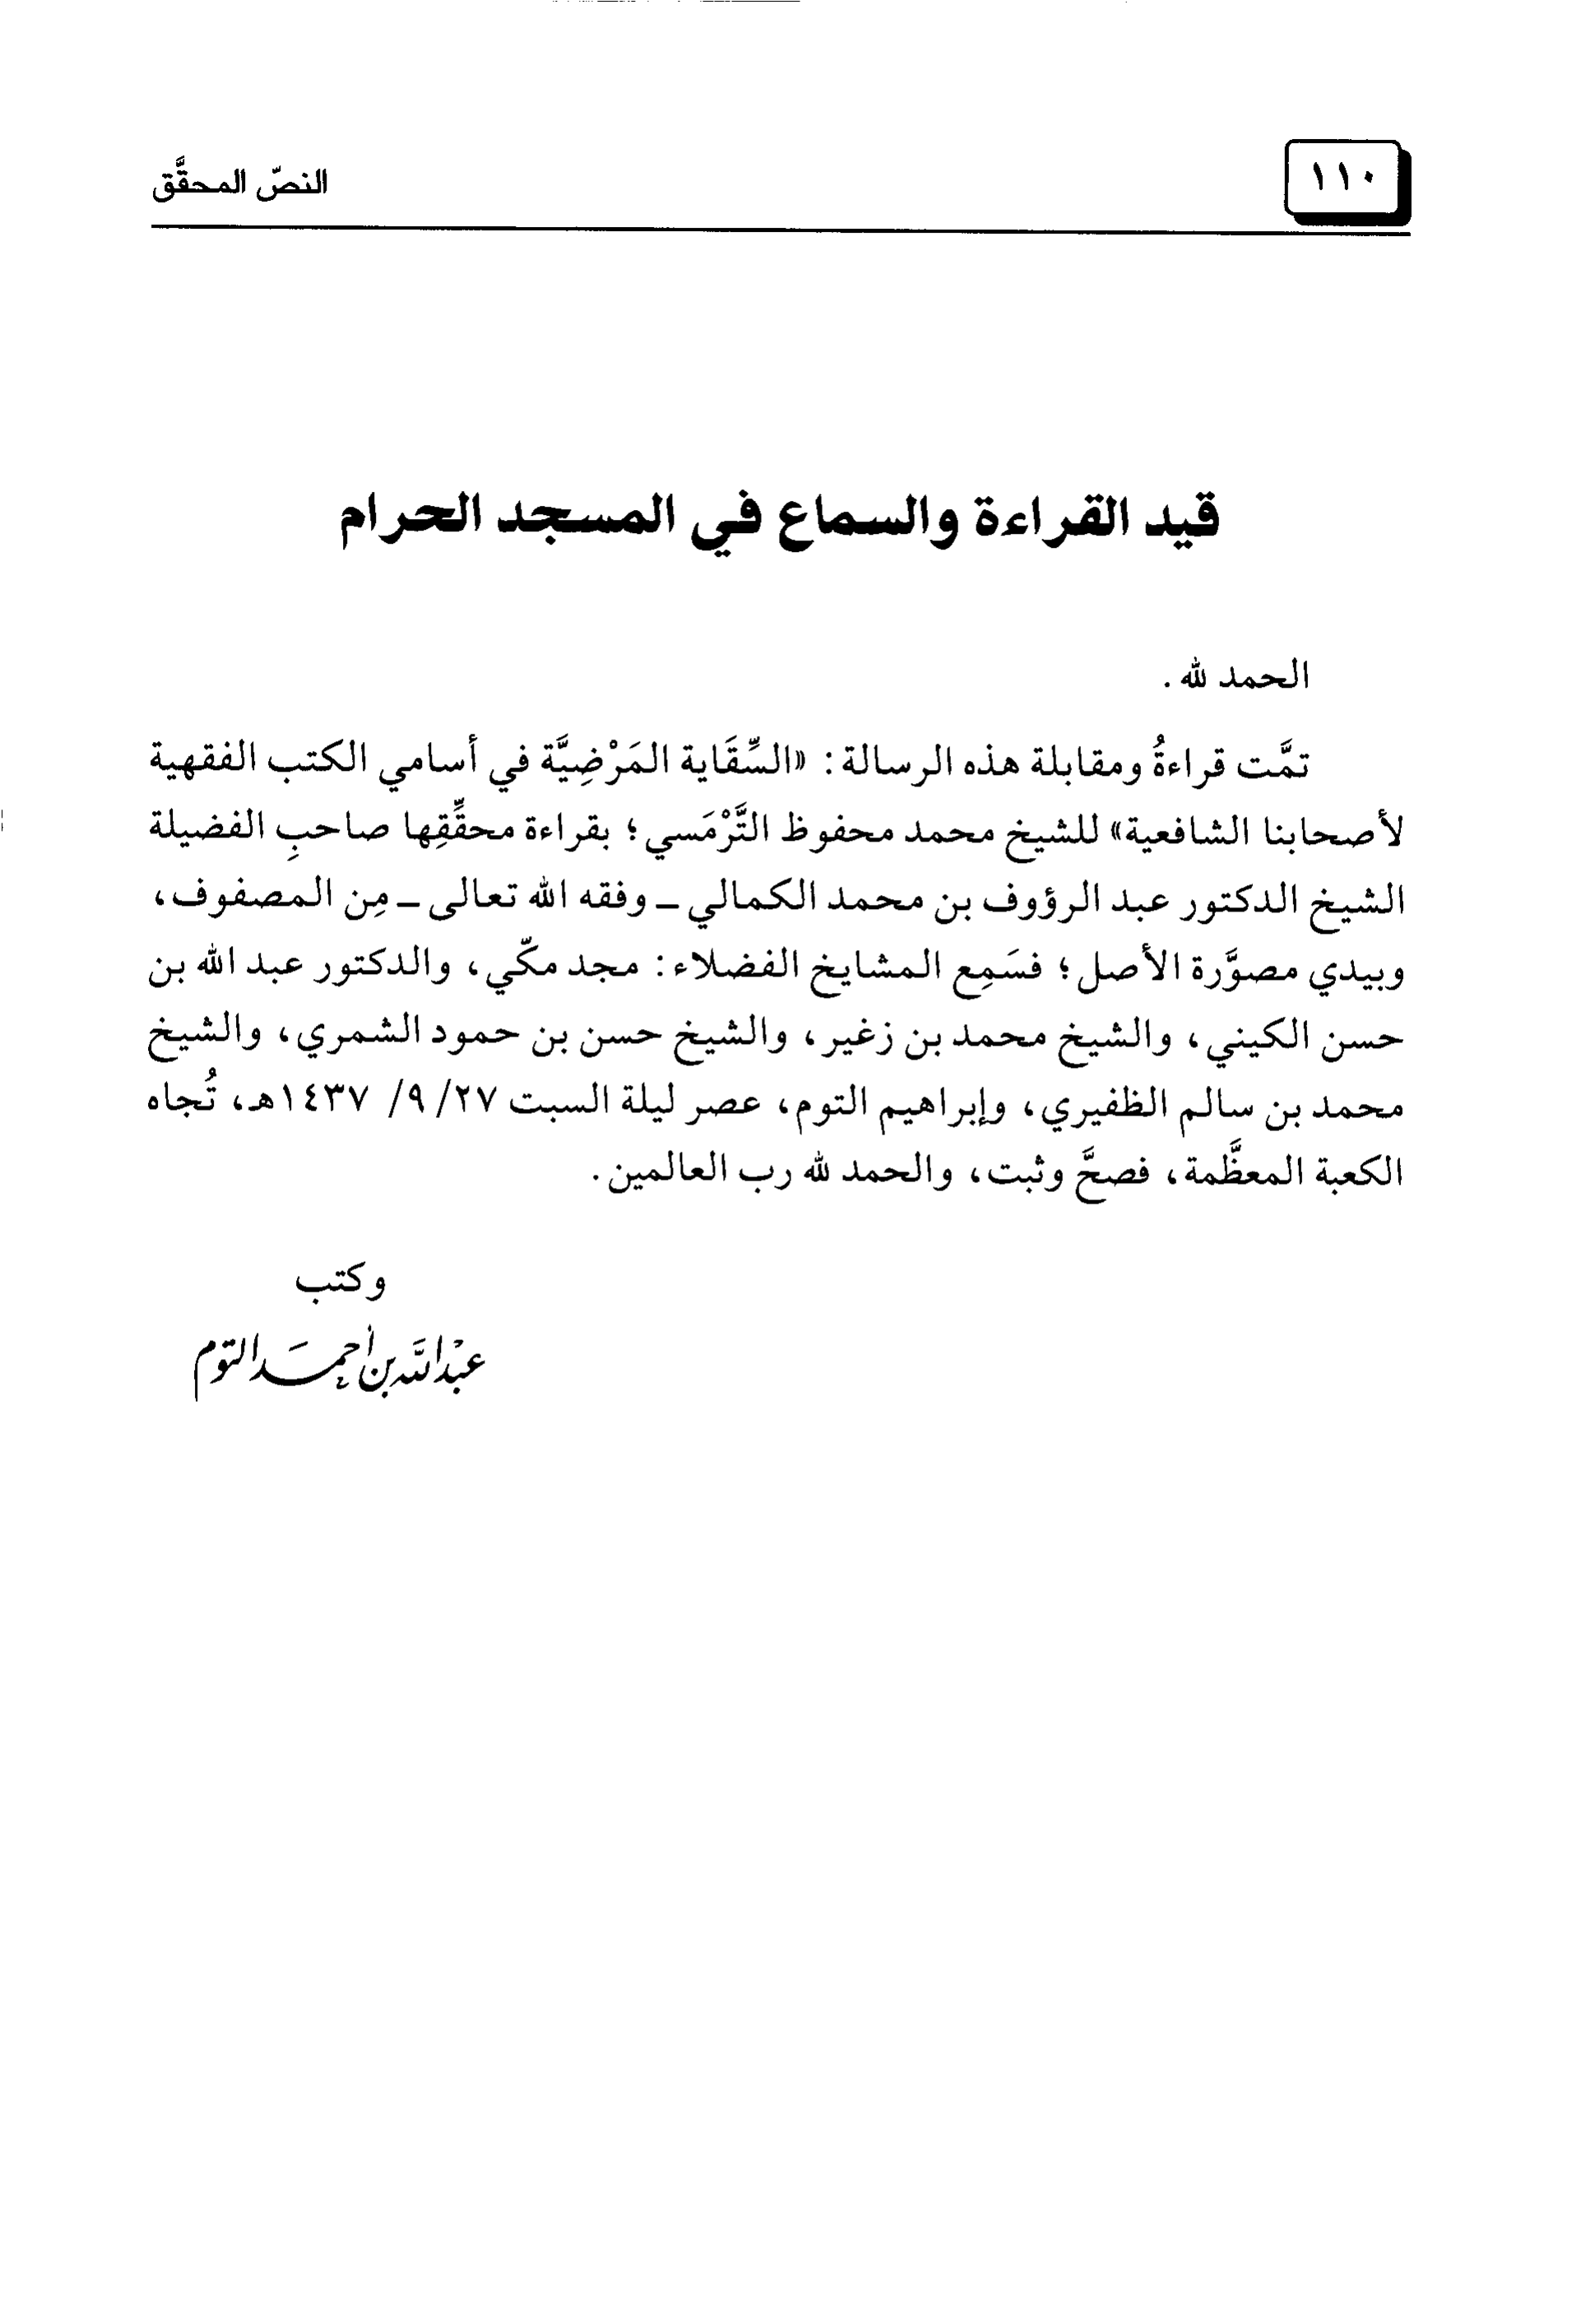 ١١٠
النصّ المحقَّق
قيد القراءة والسماع في المسجد الحرام
الحمد لله .
تمَّت قراءةُ ومقابلة هذه الرسالة: «السِّقَاية المَرْضِيَّة في أسامي الكتب الفقهية
لأصحابنا الشافعية» للشيخ محمد محفوظ التَّرْمَسي؛ بقراءة محقِّقِها صاحبِ الفضيلة
الشيخ الدكتور عبد الرؤوف بن محمد الكمالي ـ وفقه الله تعالى ـ مِن المصفوف،
وبيدي مصوَّرة الأصل؛ فسَمِع المشايخ الفضلاء: مجد مكّي، والدكتور عبد الله بن
حسن الكيني، والشيخ محمد بن زغير، والشيخ حسن بن حمود الشمري، والشيخ
محمد بن سالم الظفيري، وإبراهيم التوم، عصر ليلة السبت ٢٧/ ٩/ ١٤٣٧هـ، تُجاه
الكعبة المعظَّمة، فصحَّ وثبت، والحمد لله رب العالمين.
وكتب
عبْد الله بن أحمَد التوم